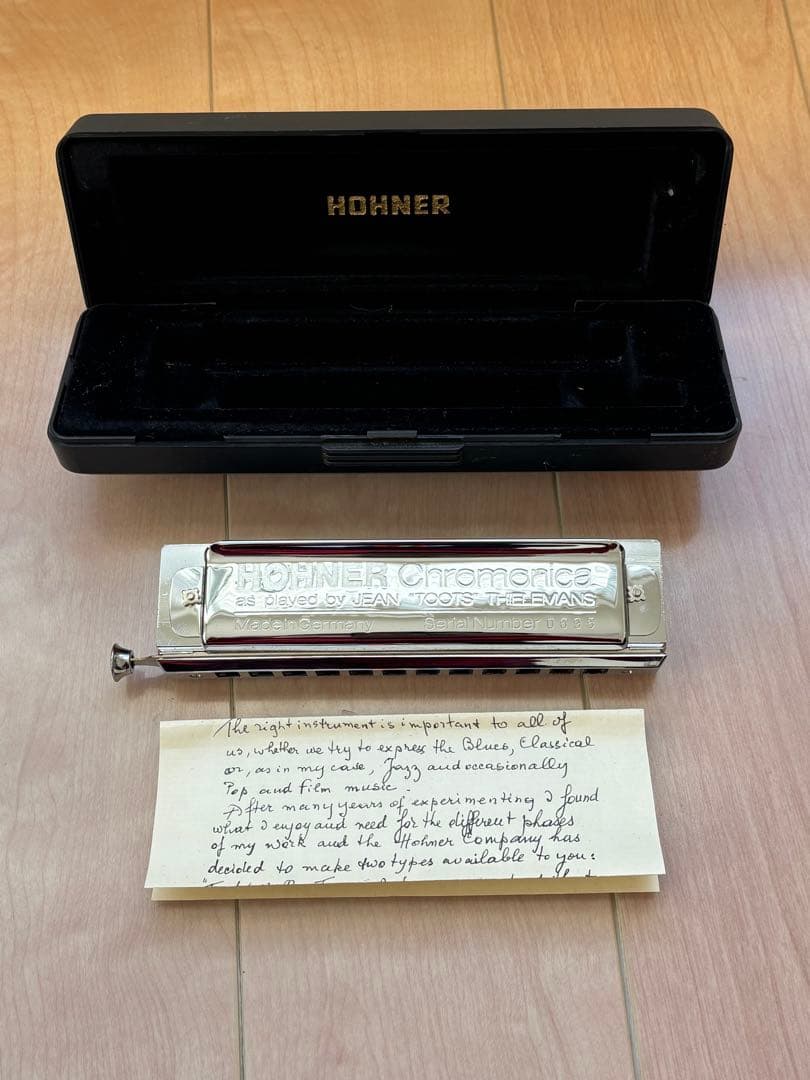 HOHNER
HOHNER Chromonica
as played by JEAN "TOOTS" THIELEMANS
Made in Germany Serial Number
The right instrument is important to all of
us, whether we try to express the Blues, Classical
or, as in my case, Jazz and occasionally
Pop and Film music.
After many years of experimenting I found
what I enjoy and need for the different phases
of my work and the Hohner Company has
decided to make two types available to you: